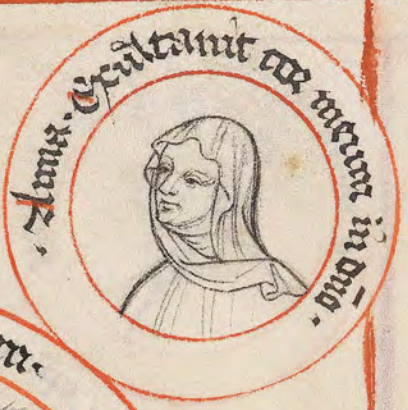 ·Anna· Exultauit cor meum in dño·